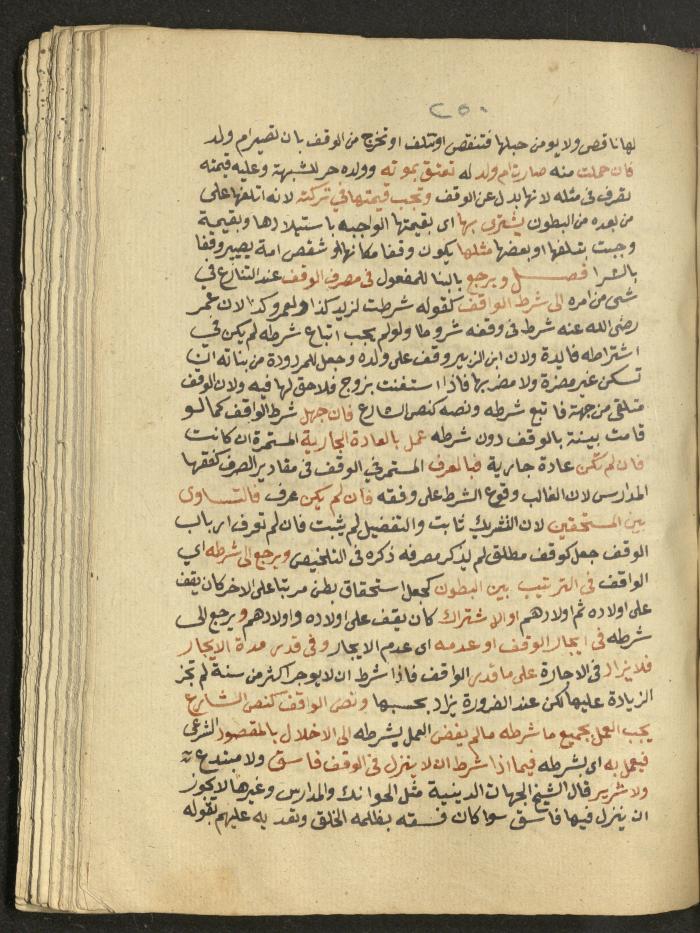 ٢٥٠
لها ناقص ولا يومن حبلها فتنقص او تتلف او تخرج من الوقف بان تصير ام ولد
فان حملت منه صارت ام ولد له تعتق بموته وولده حر للشبهة وعليه قيمته
تصرف في مثله لانها بدل عن الوقف وتجب قيمتها في تركته لانه اتلفها على
من بعده من البطون يشترى بها اى بقيمتها الواجبه باستيلادها وبقيمة
وجبت بتلفها او بعضها مثلها يكون وقفا مكانها او شقص امة يصير وقفا
بالشرا فصل ويرجع بالبنا للمفعول في مصرف الوقف عند التنازع في
شى من امره الى شرط الواقف كقوله شرطت لزيد كذا ولعمرو كذا لان عمر
رضى الله عنه شرط في وقفه شروطا ولو لم يجب اتباع شرطه لم يكن في
اشتراطه فايدة ولان ابن الزبير وقف على ولده وجعل للمردودة من بناته ان
تسكن غير مضرة ولا مضر بها فاذا استغنت بزوج فلا حق لها فيه ولان الوقف
متلقى من جهته فاتبع شرطه ونصه كنص الشارع فان جهل شرط الواقف كما لو
قامت بينة بالوقف دون شرطه عمل بالعادة الجارية المستمرة ان كانت
فان لم تكن عادة جارية فبالعرف المستمر في الوقف في مقادير الصرف كفقها
المدارس لان الغالب وقوع الشرط على وفقه فان لم يكن عرف فالتساوى
بين المستحقين لان التشريك ثابت والتفضيل لم يثبت فان لم تعرف ارباب
الوقف جعل كوقف مطلق لم يذكر مصرفه ذكره في التلخيص ويرجع الى شرطه اي
الواقف في الترتيب بين البطون كجعل استحقاق بطن مرتبا على الاخر كان يقف
على اولاده ثم اولادهم او الاشتراك كان يقف على اولاده واولادهم ويرجع الى
شرطه في ايجار الوقف او عدمه اى عدم الايجار وفي قدر مدة الايجار
فلا يزاد في الاجارة على ما قدر الواقف فاذا شرط ان لا يوجر اكثر من سنة لم تجز
الزيادة عليها لكن عند الضرورة يزاد بحسبها ونص الواقف كنص الشارع
يجب العمل بجميع ما شرطه ما لم يفض العمل بشرطه الى الاخلال بالمقصود الشرعي
فيعمل به اى بشرطه فيما اذا شرط ان لا ينزل في الوقف فاسق ولا مبتدع
ولا شرير قال الشيخ الجهات الدينية مثل الخوانك والمدارس وغيرها لا يجوز
ان ينزل فيها فاسق سوا كان فسقه بظلمه الخلق وتعديه عليهم بقوله